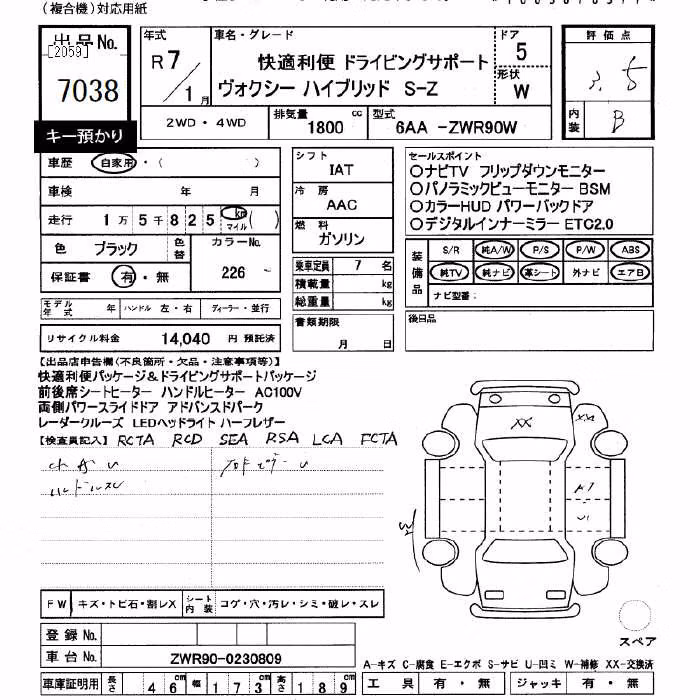 (複合機)対応用紙
出品No.
[2059]
7038
キー預かり
年式
R7/1月
車名・グレード
快適利便 ドライビングサポート
ヴォクシー ハイブリッド S-Z
ドア
5
形状
W
評価点
3.5
内装
B
2WD・4WD
排気量
1800 cc
型式
6AA -ZWR90W
車歴
自家用・( )
車検 年 月
走行 1万5千825 km マイル ( )
色 ブラック
色替
カラーNo.
226 -
保証書 有・無
シフト
IAT
冷房
AAC
燃料
ガソリン
乗車定員 7 名
積載量 kg
総重量 kg
書類期限
月 日
セールスポイント
○ナビTV フリップダウンモニター
○パノラミックビューモニター BSM
○カラーHUD パワーバックドア
○デジタルインナーミラー ETC2.0
装備品
S/R 純A/W P/S P/W ABS
純TV 純ナビ 革シート 外ナビ エアB
ナビ型番:
後日品
モデル年式 年 ハンドル 左・右 ディーラー・並行
リサイクル料金 14,040 円 預託済
【出品店申告欄(不良箇所・欠品・注意事項等)】
快適利便パッケージ&ドライビングサポートパッケージ
前後席シートヒーター ハンドルヒーター AC100V
両側パワースライドドア アドバンスドパーク
レーダークルーズ LEDヘッドライト ハーフレザー
【検査員記入】 RCTA RCD SEA RSA LCA FCTA
ハンドルスレ
XX
XX
FW キズ・トビ石・割レX
シート内装 コゲ・穴・汚レ・シミ・破レ・スレ
スペア
登録No.
車台No. ZWR90-0230809
A-キズ C-腐食 E-エクボ S-サビ U-凹ミ W-補修 XX-交換済
車庫証明用 長さ 46 cm 幅 173 cm 高さ 189 cm
工具 有・無 ジャッキ 有・無